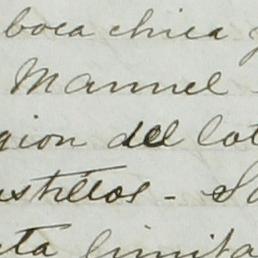 boca chica y
Manuel -
gion del lot
astillos - Sa
ta limita